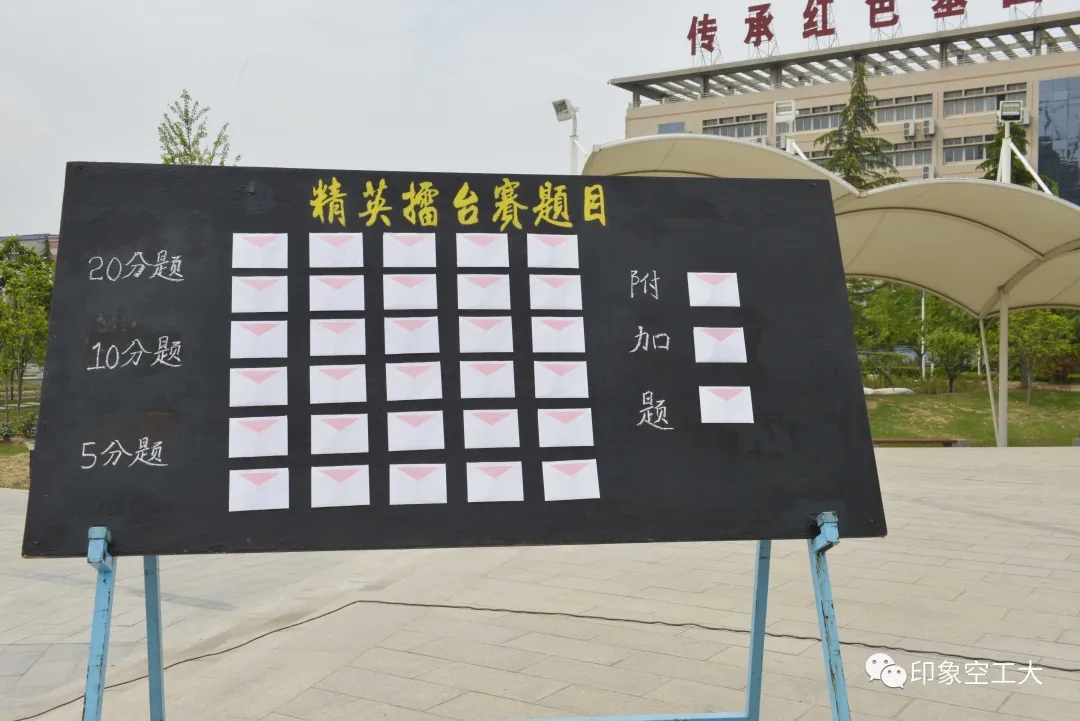 传承红色基因
精英擂台赛题目
20分题
10分题
5分题
附
加
题
印象空工大